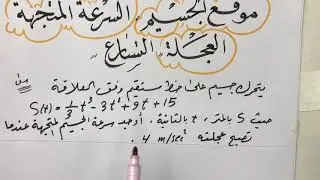 موقع الجسيم، السرعة المتجهة
العجلة "التسارع"
مثال
يتحرك جسيم على خط مستقيم وفق العلاقة
S(t) = 1/3 t³ - 3t² + 9t + 15
حيث S بالمتر، t بالثانية، أوجد سرعة الجسيم المتجهة عندما
تصبح عجلته 4 m/sec²